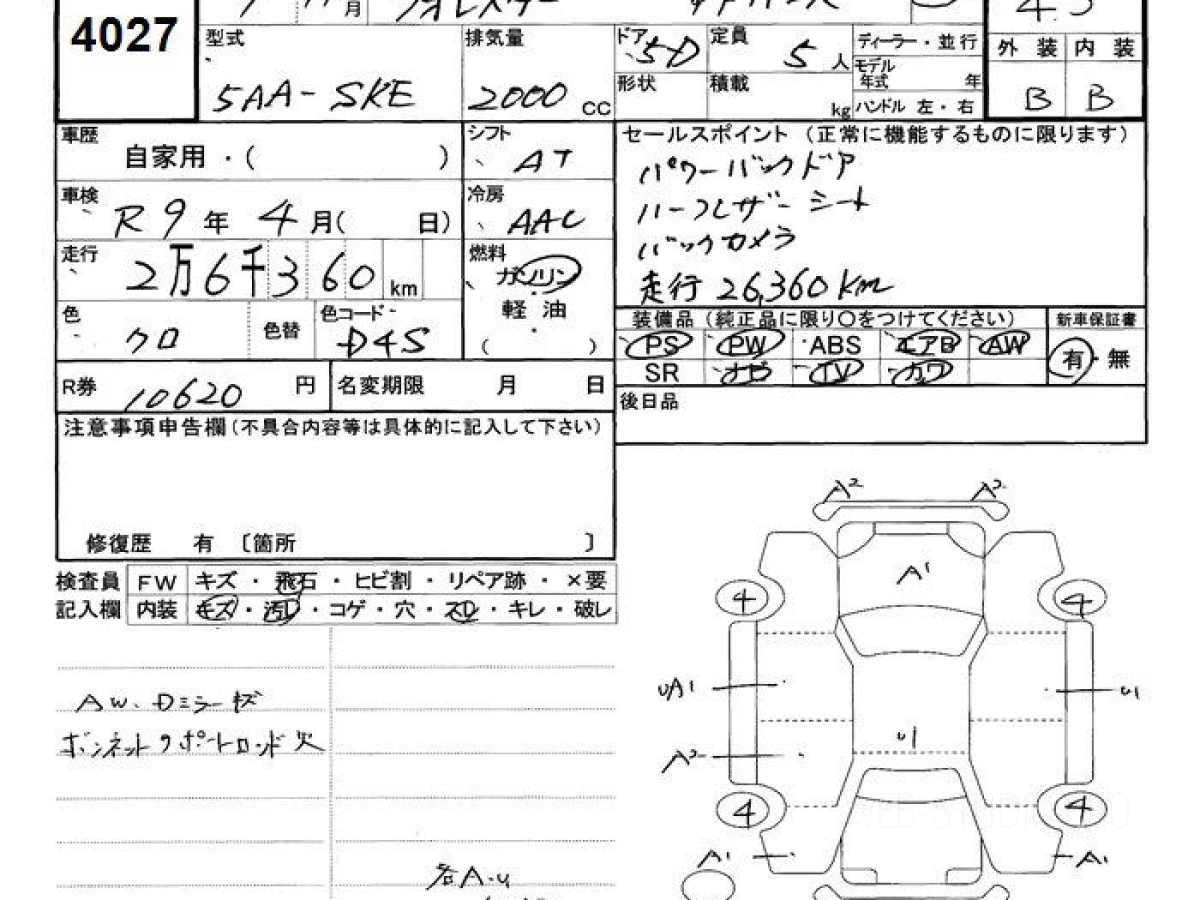 4027
月 フォレスター アドバンス
4.5
型式 排気量 ドア 5-D 定員 5 人 ディーラー・並行
外装 内装
モデル年式 年
5AA-SKE 2000 cc 形状 積載 kg ハンドル 左・右
B B
車歴 自家用・( ) シフト AT
セールスポイント (正常に機能するものに限ります)
パワーバックドア
車検 R9年 4月( 日) 冷房 AAC
ハーフレザーシート
バックカメラ
走行 2万6千360km 燃料 ガソリン
走行 26,360km
軽油
( )
色 クロ 色替 色コード D4S
装備品 (純正品に限り○をつけてください) 新車保証書
PS PW ABS エアB AW
SR ナビ TV カワ
有・無
R券 10620 円 名変期限 月 日
後日品
注意事項申告欄(不具合内容等は具体的に記入して下さい)
修復歴 有 〔箇所 〕
検査員 FW キズ・飛石・ヒビ割・リペア跡・×要
記入欄 内装 キズ・汚レ・コゲ・穴・スレ・キレ・破レ
AW、Dミラーキズ
ボンネットサポートロッド欠
各A・U
A2 A2
A1
4 4
UA1 U1
U1
A2
4 4
A1 A1